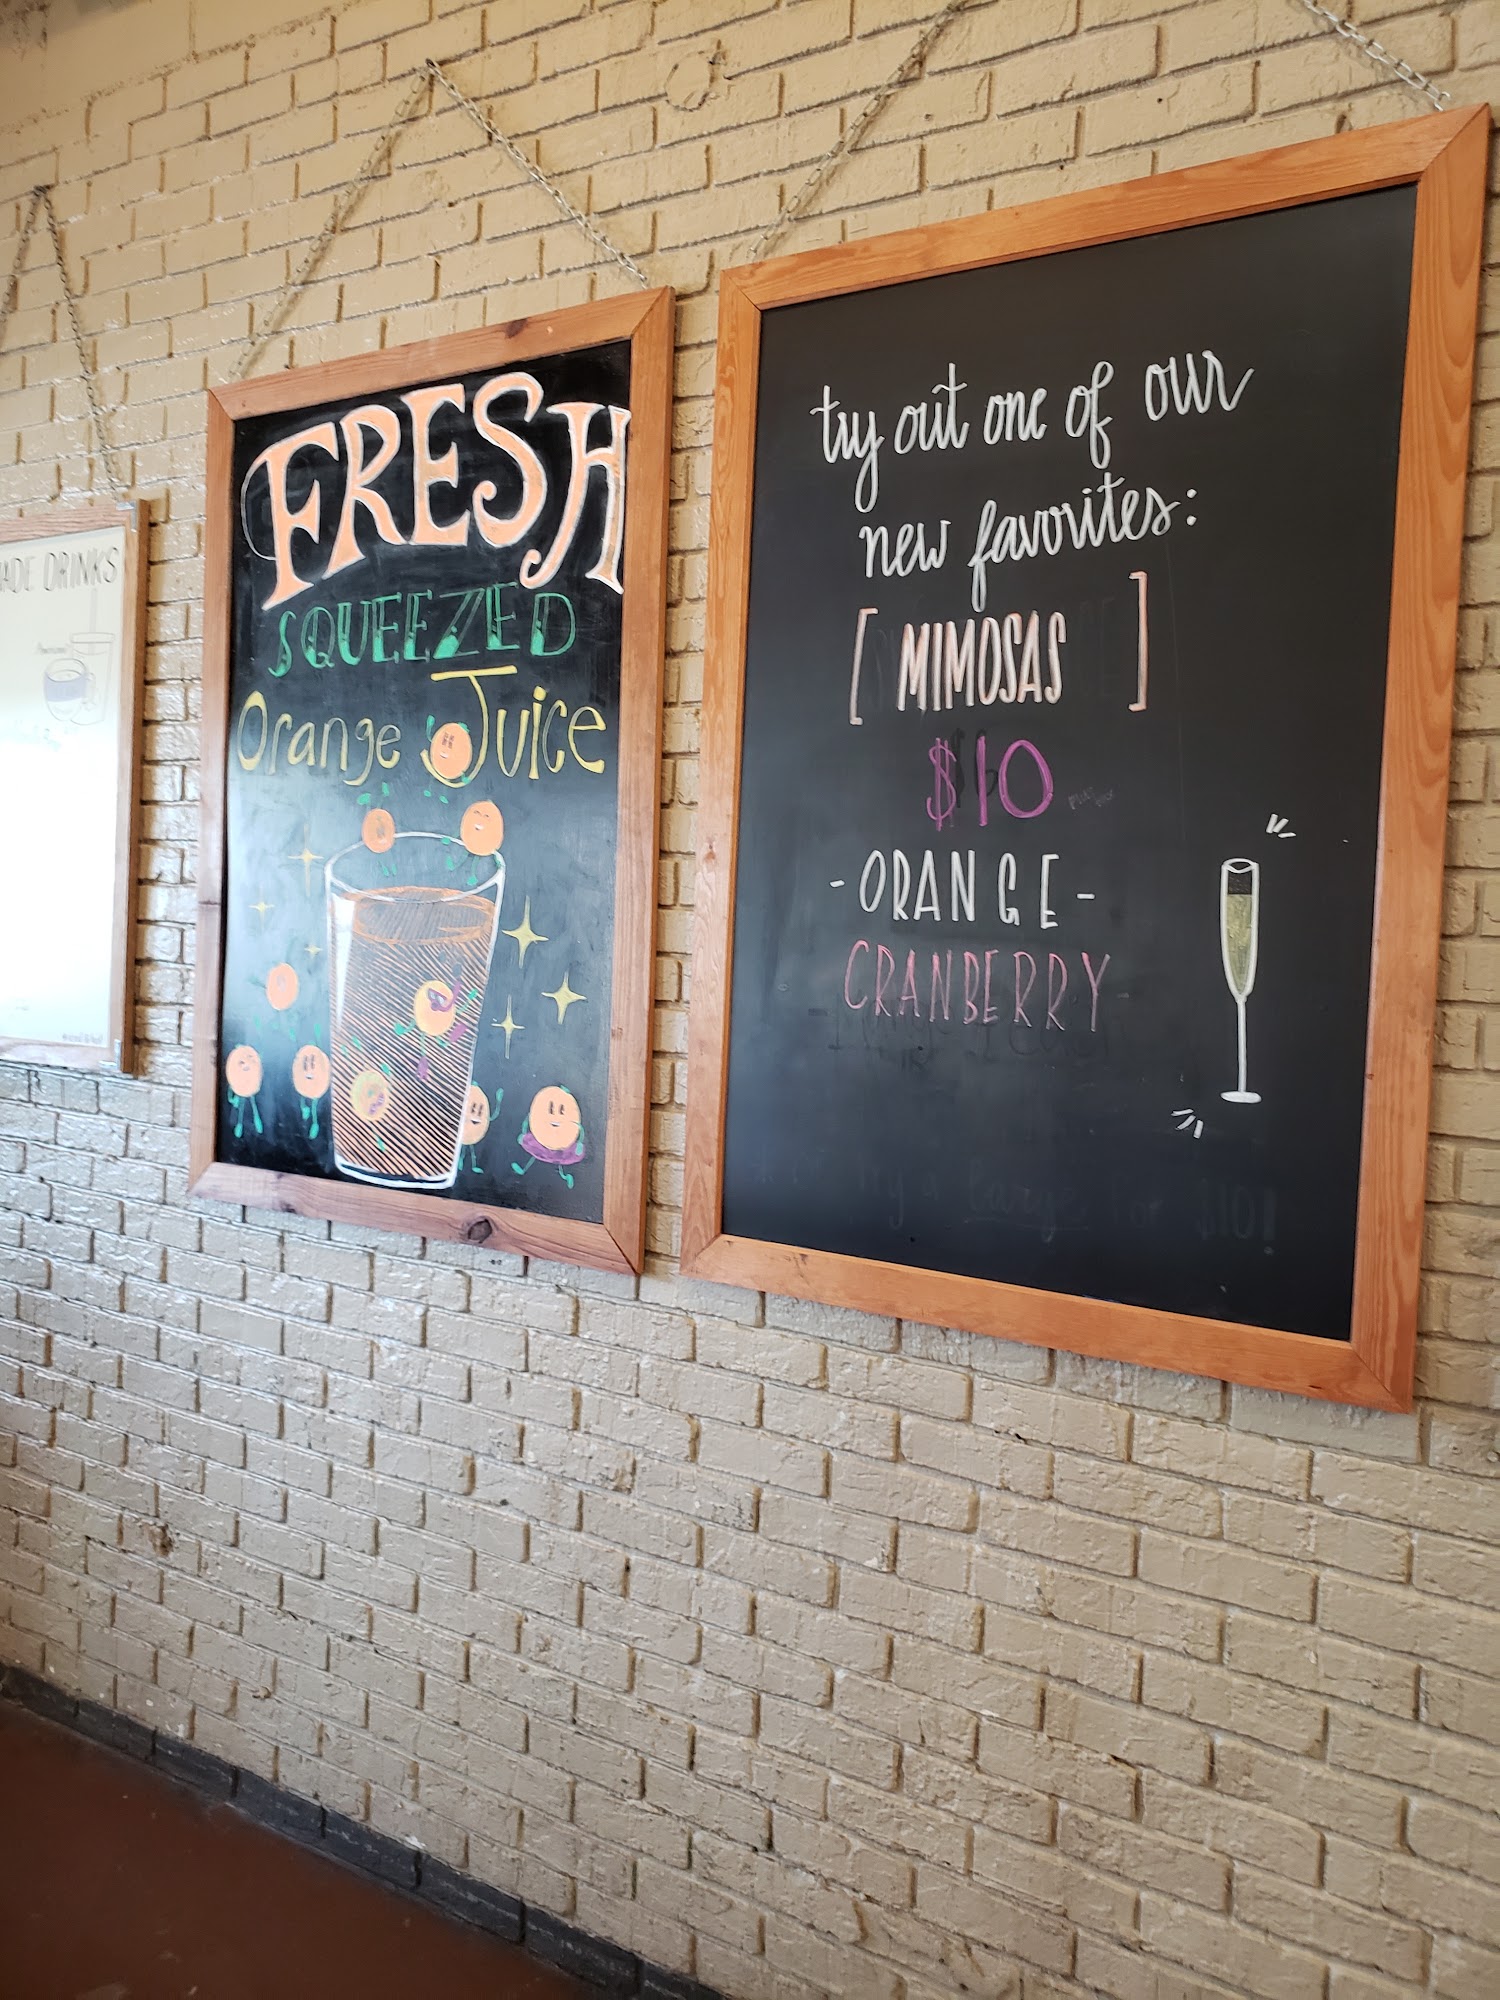 ADE DRINKS
FRESH
SQUEEZED
Orange Juice
try out one of our
new favorites:
[ MIMOSAS ]
$10
-ORANGE-
CRANBERRY-
try a large for $10!